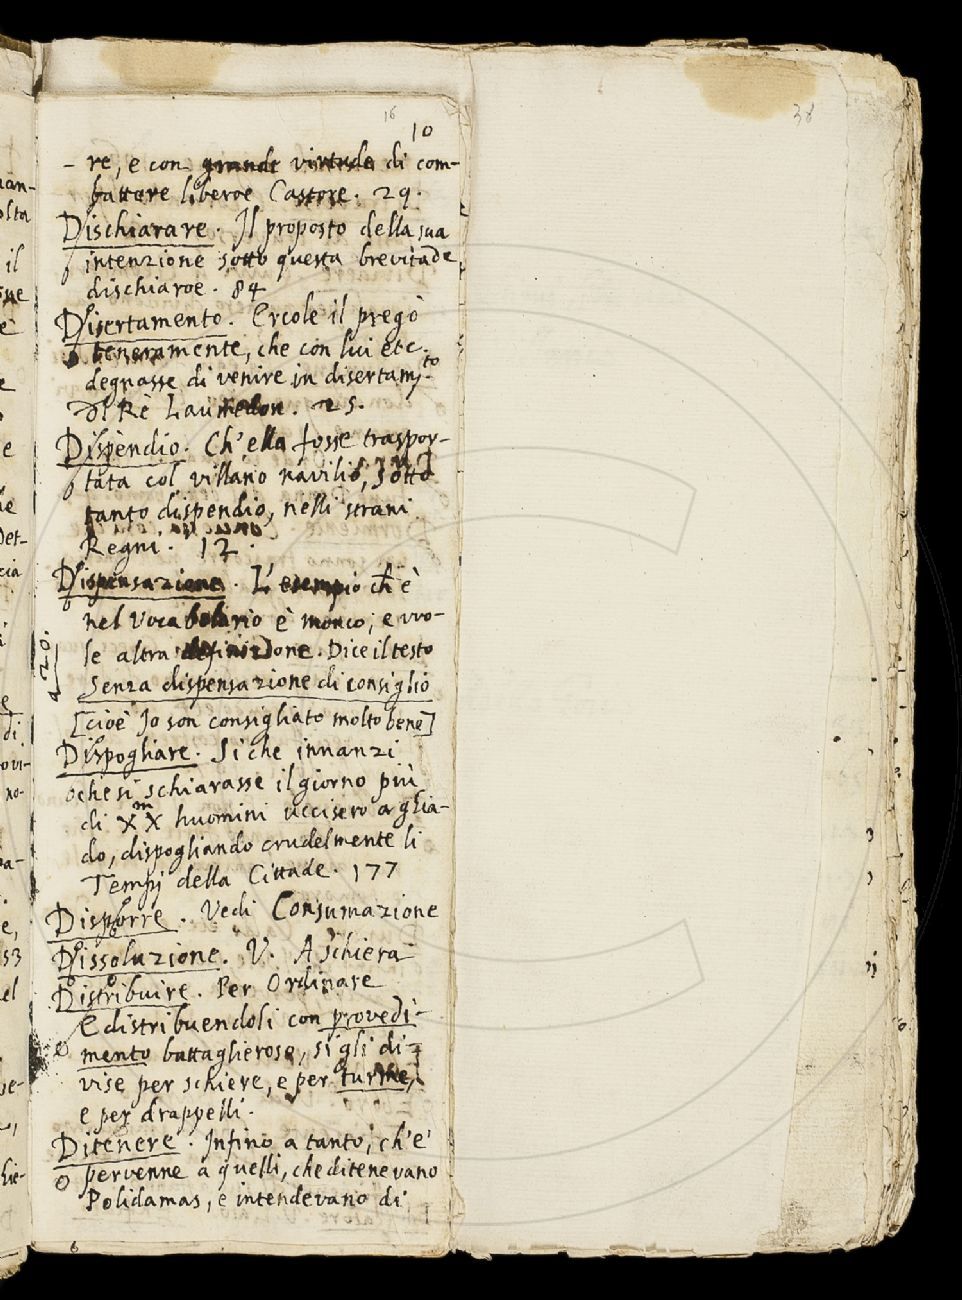 16
10
38
- re, e con grande virtude di com-
battere liberoe Castore. 29.
Dischiarare. Il proposto della sua
intenzione sotto questa brevitade
dischiaroe. 84
Disertamento. Ercole il pregò
teneramente, che con lui etc.
degnasse di venire in disertam.to
di Rè Laumedon. 25.
Dispèndio. Ch'ella fosse traspor-
tata col villano navilio, sotto
tanto dispendio, nelli strani
Regni. 12.
Dispensazione. L'esempio ch'è
nel Vocabolario è monco, e vvo-
le altra definizione. Dice il testo
senza dispensazione di consiglio
[cioè Io son consigliato molto bene]
120.
Dispogliare. Si che innanzi
che si schiarasse il giorno più
di XXm huomini uccisero a ghia-
do, dispogliando crudelmente li
Tempj della Cittade. 177
Disporre. Vedi Consumazione
Dissoluzione. V. A schiera
Distribuire. Per Ordinare
E distribuendoli con provedi-
mento battaglieroso, si gli di-
vise per schiere, e per turme,
e per drappelli.
Ditenere. Infino a tanto, ch'e'
pervenne a quelli, che ditenevano
Polidamas, e intendevano di